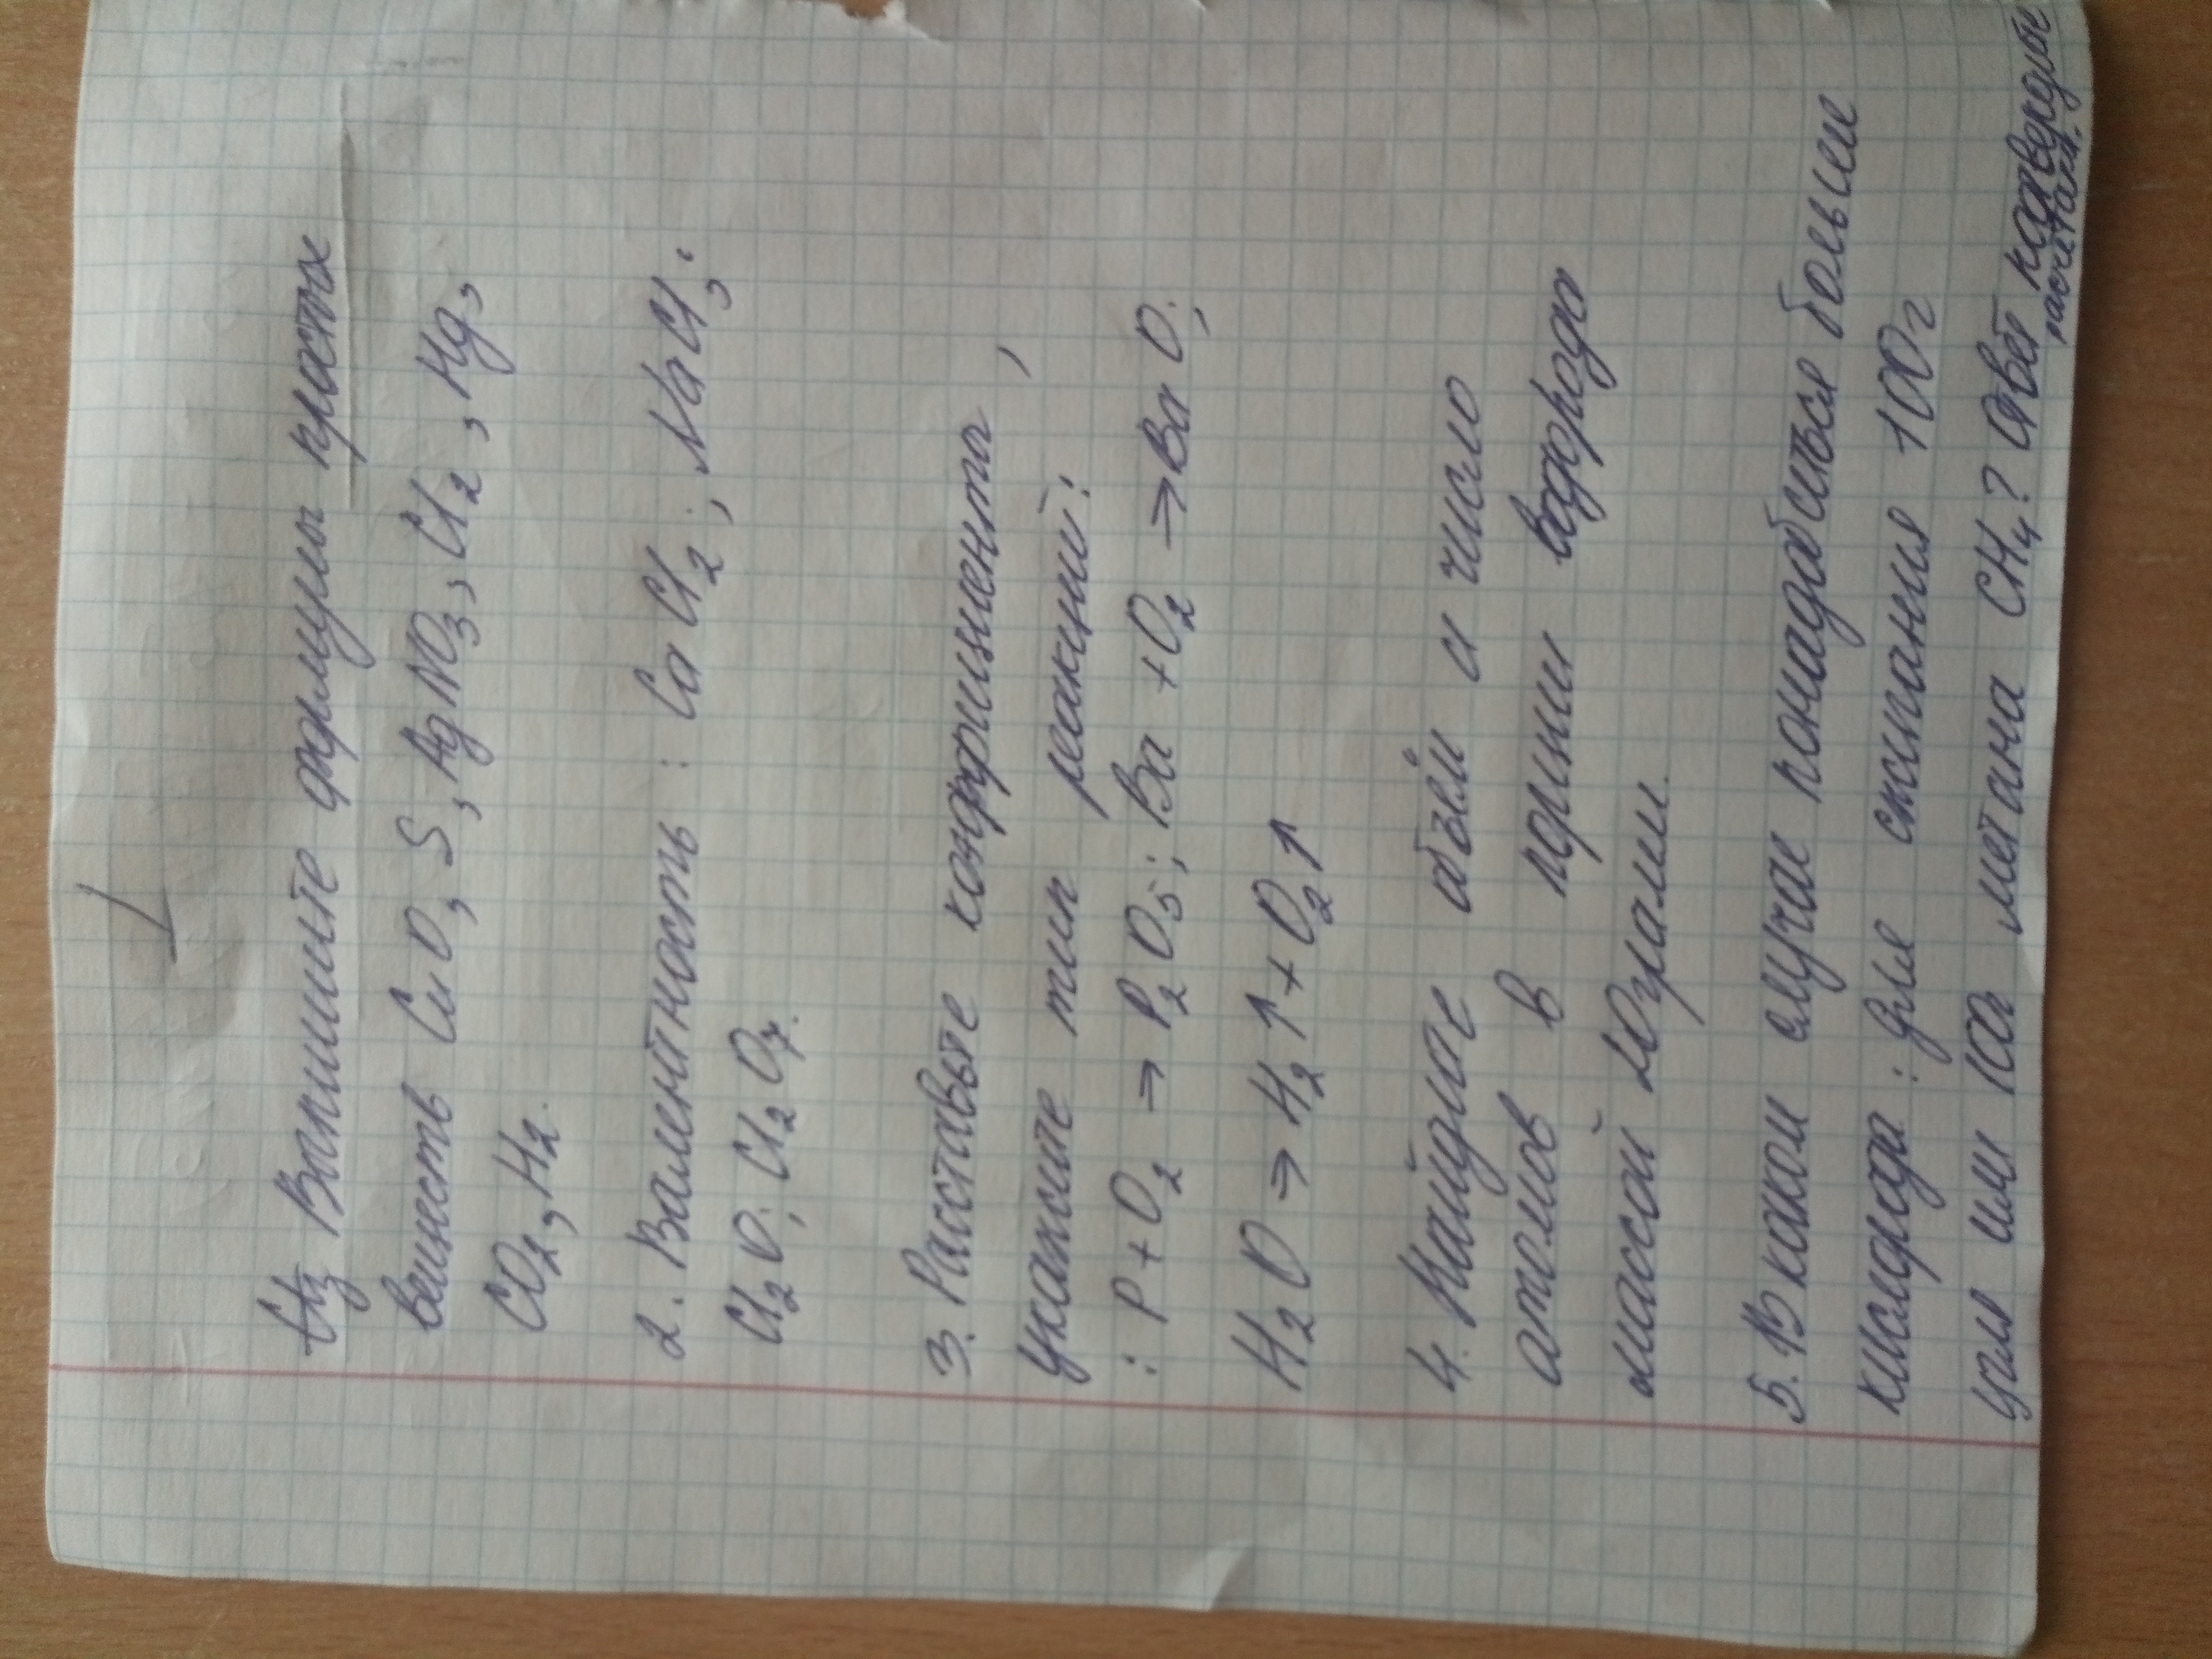 Выпишите формулы простых
веществ CuO, S, AgNO3, Cl2, Hg,
CO2, H2.
2. Валентность: CaCl2; NaCl;
Cl2O; Cl2O7.
3. Расставьте коэффициенты,
укажите тип реакции:
: P + O2 → P2O5; Ba + O2 → BaO;
H2O → H2↑ + O2↑
4. Найдите объём и число
атомов в порции водорода
массой 20 грамм.
5. В каком случае понадобиться больше
кислорода: для сжигания 100г
угля или 100г метана CH4? Ответ подтвердите
расчетами.